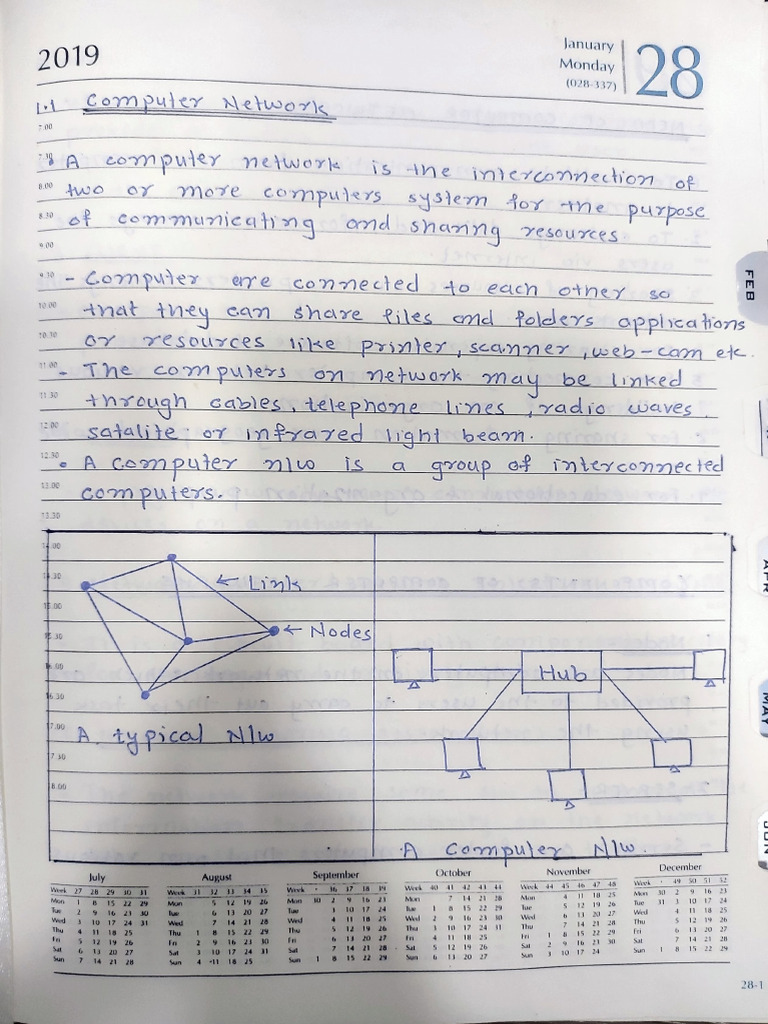 2019
January
Monday
(028-337)
28
1.1 Computer Network
7.00
7.30 • A computer network is the interconnection of
8.00 two or more computers system for the purpose
8.30 of communicating and sharing resources
9.00
9.30 - Computer are connected to each other so
10.00 that they can share files and folders applications
10.30 or resources like printer, scanner, web-cam etc.
11.00 - The computers on network may be linked
11.30 through cables, telephone lines, radio waves,
12.00 satalite or infrared light beam.
12.30 • A computer n/w is a group of interconnected
13.00 computers.
13.30
14.00
14.30 ← Link
15.00
15.30 ← Nodes
16.00 Hub
16.30
17.00 A typical N/w
7 30
8.00
A Computer N/w.
FEB
APR
MAY
JUN
July
Week 27 28 29 30 31
Mon 1 8 15 22 29
Tue 2 9 16 23 30
Wed 3 10 17 24 31
Thu 4 11 18 25
Fri 5 12 19 26
Sat 6 13 20 27
Sun 7 14 21 28
August
Week 31 32 33 34 35
Mon 5 12 19 26
Tue 6 13 20 27
Wed 7 14 21 28
Thu 1 8 15 22 29
Fri 2 9 16 23 30
Sat 3 10 17 24 31
Sun 4 11 18 25
September
Mon 30 2 9 16 23
Tue 3 10 17 24
Wed 4 11 18 25
Thu 5 12 19 26
Fri 6 13 20 27
Sat 7 14 21 28
Sun 1 8 15 22 29
October
Week 40 41 42 43 44
Mon 7 14 21 28
Tue 1 8 15 22 29
Wed 2 9 16 23 30
Thu 3 10 17 24 31
Fri 4 11 18 25
Sat 5 12 19 26
Sun 6 13 20 27
November
Week 44 45 46 47 48
Mon 4 11 18 25
Tue 5 12 19 26
Wed 6 13 20 27
Thu 7 14 21 28
Fri 1 8 15 22 29
Sat 2 9 16 23 30
Sun 3 10 17 24
December
Week 49 50 51 52
Mon 30 2 9 16 23
Tue 31 3 10 17 24
Wed 4 11 18 25
Thu 5 12 19 26
Fri 6 13 20 27
Sat 7 14 21 28
Sun 1 8 15 22 29
28-1